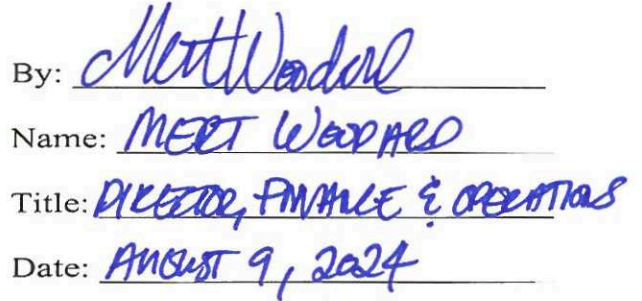 By: Mert Woodard
Name: MERT WOODARD
Title: DIRECTOR, FINANCE & OPERATIONS
Date: AUGUST 9, 2024